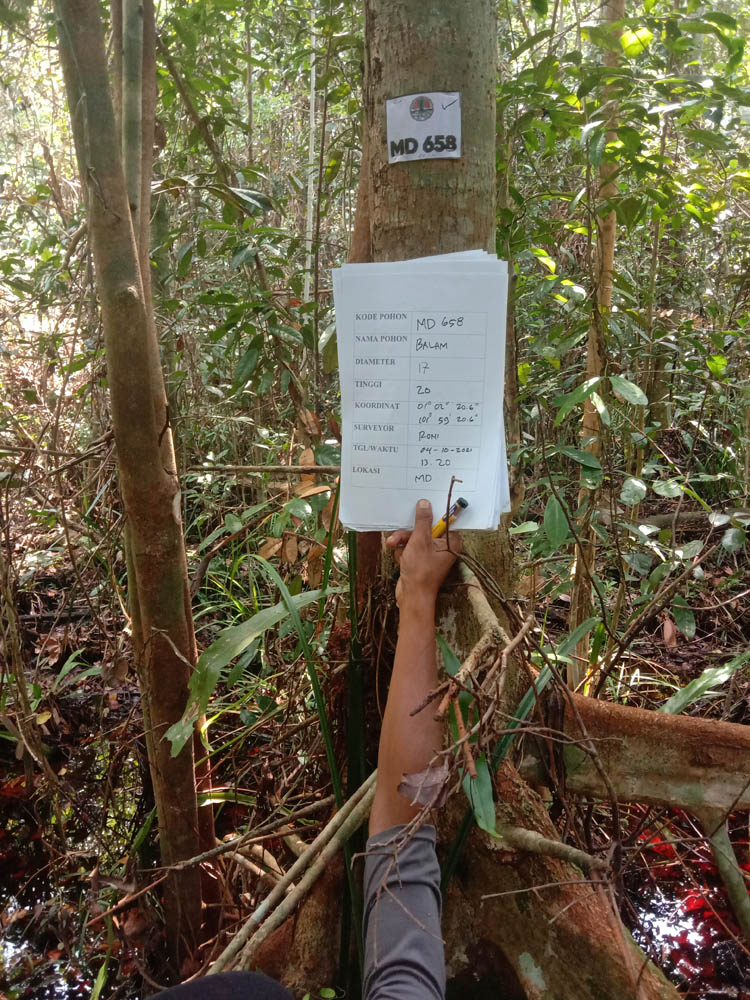 MD 658
KODE POHON MD 658
NAMA POHON BALAM
DIAMETER 17
TINGGI 20
KOORDINAT 01° 02" 20.6"
101° 59' 20.6"
SURVEYOR RONI
TGL/WAKTU 04-10-2021
13.20
LOKASI MD